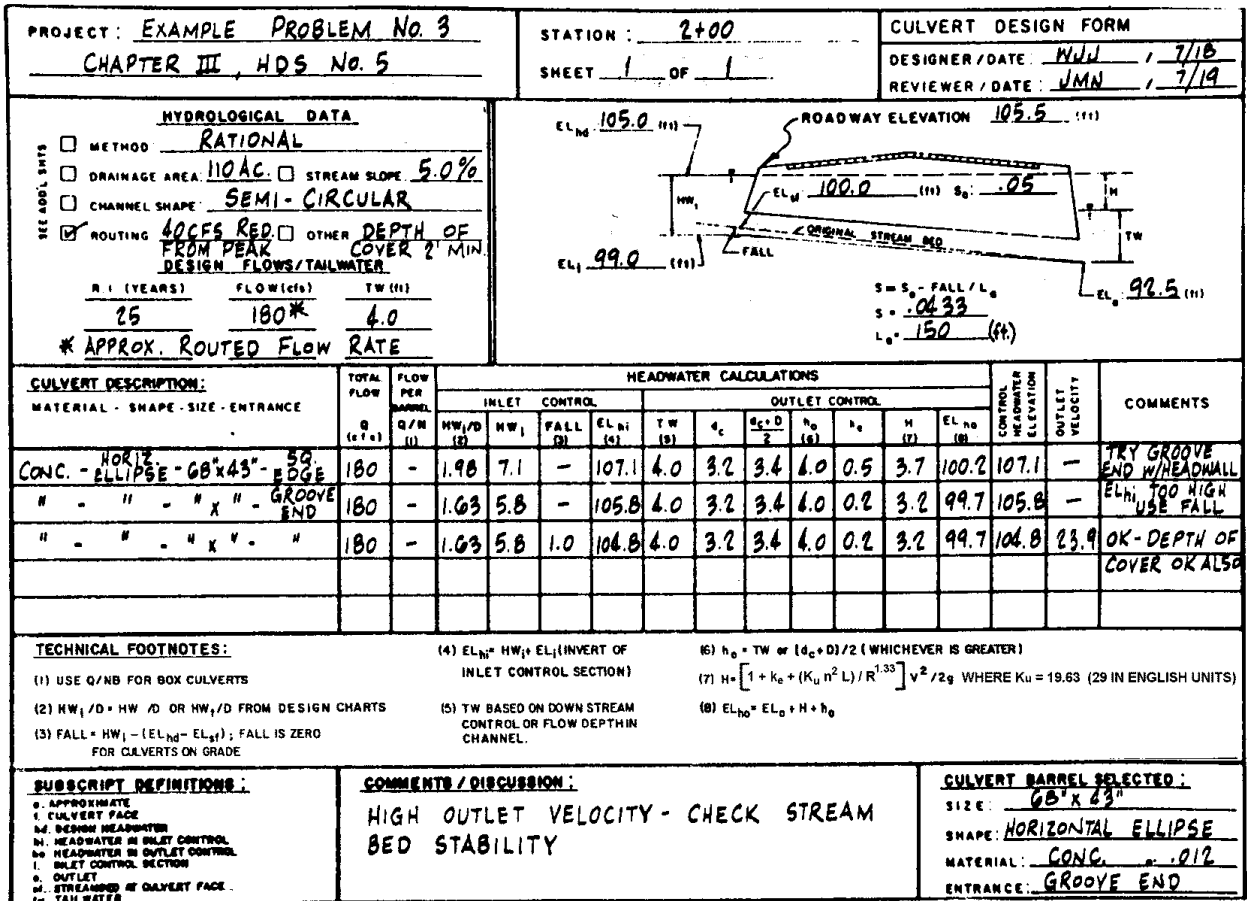 PROJECT: EXAMPLE PROBLEM No. 3
CHAPTER III, HDS No. 5
STATION: 2+00
SHEET 1 OF 1
CULVERT DESIGN FORM
DESIGNER / DATE: WJJ / 7/18
REVIEWER / DATE: JMN / 7/19
HYDROLOGICAL DATA
SEE ADD'L SHTS
METHOD: RATIONAL
DRAINAGE AREA: 110 AC. STREAM SLOPE: 5.0%
CHANNEL SHAPE: SEMI-CIRCULAR
ROUTING: 40CFS RED. FROM PEAK OTHER: DEPTH OF COVER 2' MIN.
DESIGN FLOWS/TAILWATER
R.I. (YEARS) FLOW(cfs) TW (ft)
25 180* 4.0
* APPROX. ROUTED FLOW RATE
ELhd: 105.0 (ft)
ROADWAY ELEVATION: 105.5 (ft)
ELsf: 100.0 (ft) So: .05
HWi
H
TW
ORIGINAL STREAM BED
FALL
ELi: 99.0 (ft)
ELo: 92.5 (ft)
S = So - FALL / La
S = .0433
La = 150 (ft.)
CULVERT DESCRIPTION:
MATERIAL - SHAPE - SIZE - ENTRANCE
TOTAL FLOW Q (cfs)
FLOW PER BARREL Q/N (1)
HEADWATER CALCULATIONS
INLET CONTROL
OUTLET CONTROL
HWi/D (2) HWi FALL (3) ELhi (4) TW (5) dc dc+D/2 ho (6) ke H (7) ELho (8)
CONTROL HEADWATER ELEVATION
OUTLET VELOCITY
COMMENTS
CONC. - HORIZ. ELLIPSE - 68"x43" - SQ. EDGE 180 - 1.98 7.1 - 107.1 4.0 3.2 3.4 4.0 0.5 3.7 100.2 107.1 - TRY GROOVE END W/HEADWALL
" - " - " x " - GROOVE END 180 - 1.63 5.8 - 105.8 4.0 3.2 3.4 4.0 0.2 3.2 99.7 105.8 - ELhi TOO HIGH USE FALL
" - " - " x " - " 180 - 1.63 5.8 1.0 104.8 4.0 3.2 3.4 4.0 0.2 3.2 99.7 104.8 23.9 OK - DEPTH OF
COVER OK ALSO
TECHNICAL FOOTNOTES:
(1) USE Q/NB FOR BOX CULVERTS
(2) HWi /D = HW /D OR HWi/D FROM DESIGN CHARTS
(3) FALL = HWi - (ELhd - ELsf); FALL IS ZERO
FOR CULVERTS ON GRADE
(4) ELhi = HWi + ELi (INVERT OF
INLET CONTROL SECTION)
(5) TW BASED ON DOWN STREAM
CONTROL OR FLOW DEPTH IN
CHANNEL.
(6) ho = TW or (dc+D)/2 (WHICHEVER IS GREATER)
(7) H = [1 + ke + (Ku n² L) / R^1.33] v² /2g WHERE Ku = 19.63 (29 IN ENGLISH UNITS)
(8) ELho = ELo + H + ho
SUBSCRIPT DEFINITIONS:
a. APPROXIMATE
f. CULVERT FACE
hd. DESIGN HEADWATER
hi. HEADWATER IN INLET CONTROL
ho. HEADWATER IN OUTLET CONTROL
i. INLET CONTROL SECTION
o. OUTLET
sf. STREAMBED AT CULVERT FACE
tw. TAILWATER
COMMENTS / DISCUSSION:
HIGH OUTLET VELOCITY - CHECK STREAM
BED STABILITY
CULVERT BARREL SELECTED:
SIZE: 68" x 43"
SHAPE: HORIZONTAL ELLIPSE
MATERIAL: CONC. n .012
ENTRANCE: GROOVE END